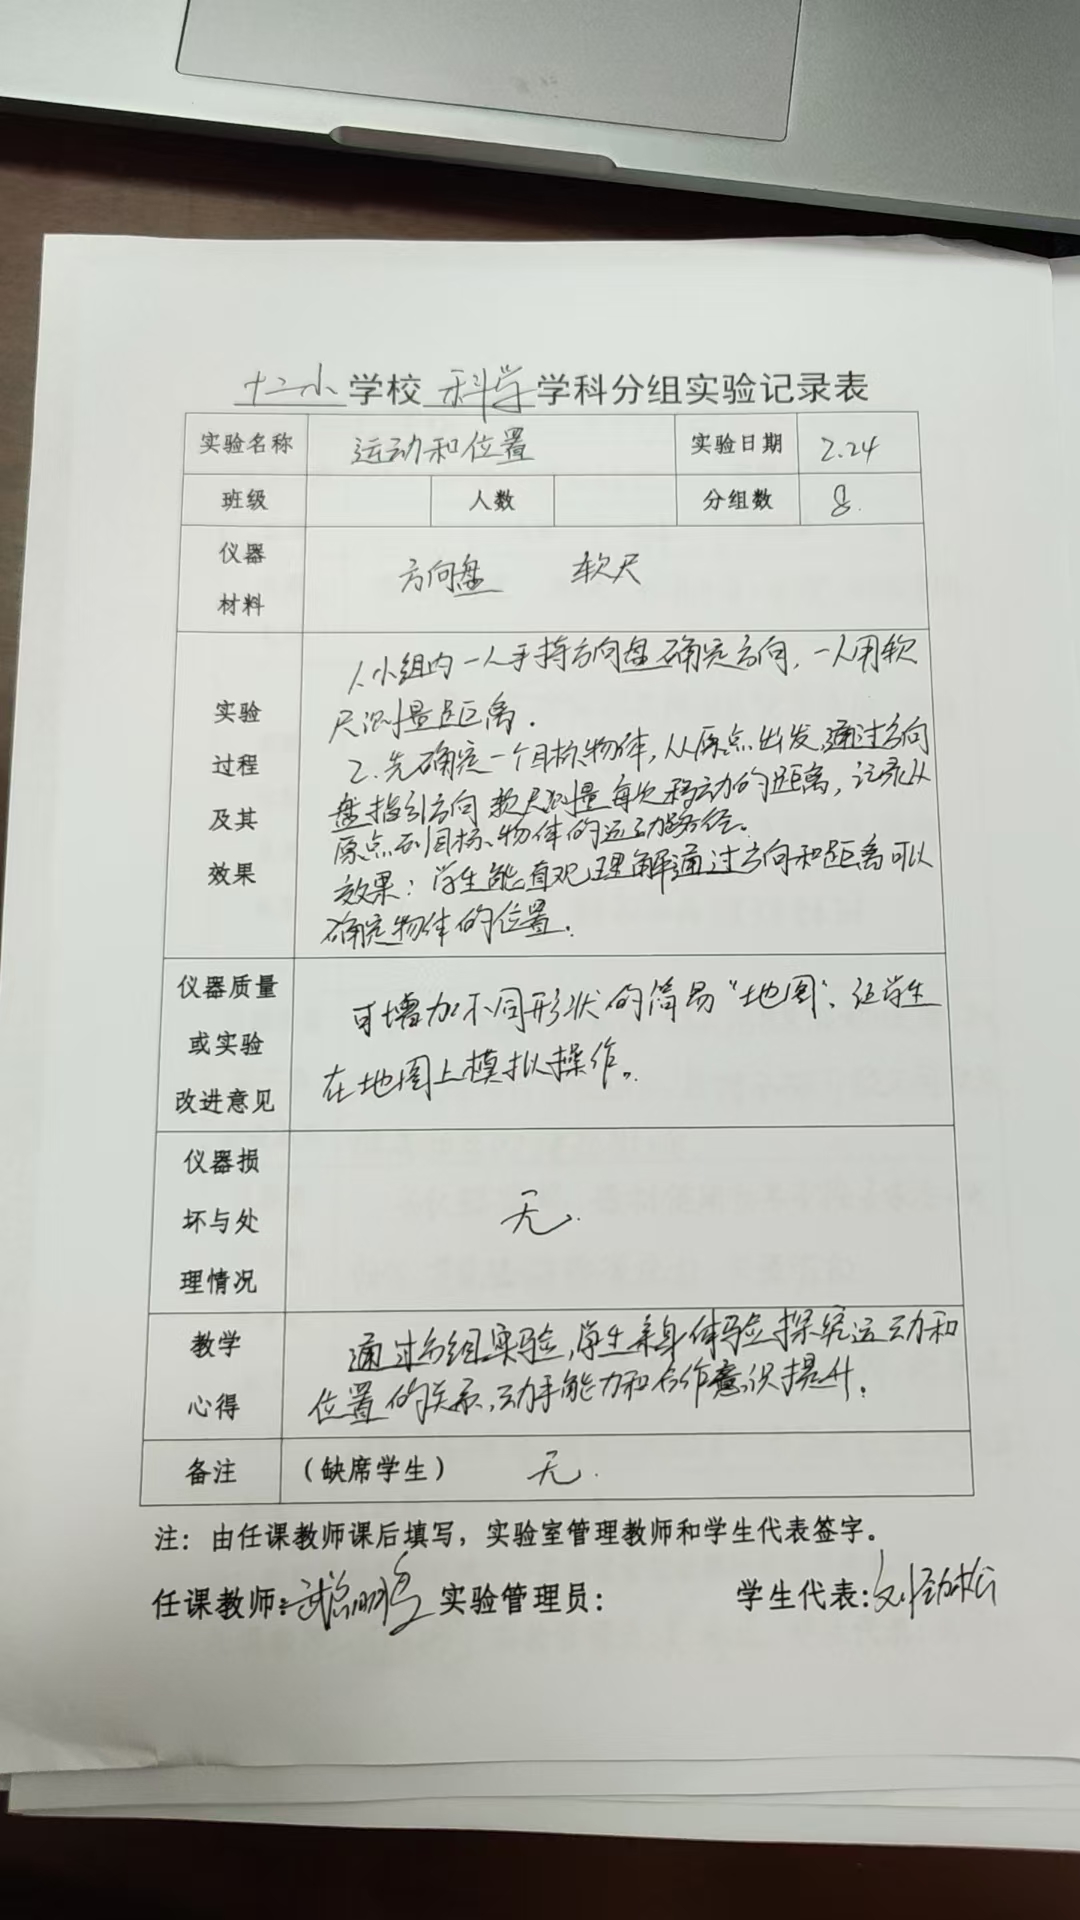 十二小学校科学学科分组实验记录表
实验名称 运动和位置 实验日期 2.24
班级 人数 分组数 8.
仪器材料 方向盘 软尺
实验过程及其效果
1.小组内一人手持方向盘确定方向,一人用软
尺测量距离.
2.先确定一个目标物体,从原点出发,通过方向
盘指引方向 软尺测量每次移动的距离,记录从
原点到目标物体的运动路径.
效果:学生能直观理解通过方向和距离可以
确定物体的位置.
仪器质量或实验改进意见
可增加不同形状的简易“地图”,让学生
在地图上模拟操作。
仪器损坏与处理情况 无.
教学心得
通过分组实验,学生亲身体验探究运动和
位置的关系,动手能力和合作意识提升.
备注 (缺席学生) 无.
注:由任课教师课后填写,实验室管理教师和学生代表签字。
任课教师: 实验管理员: 学生代表: